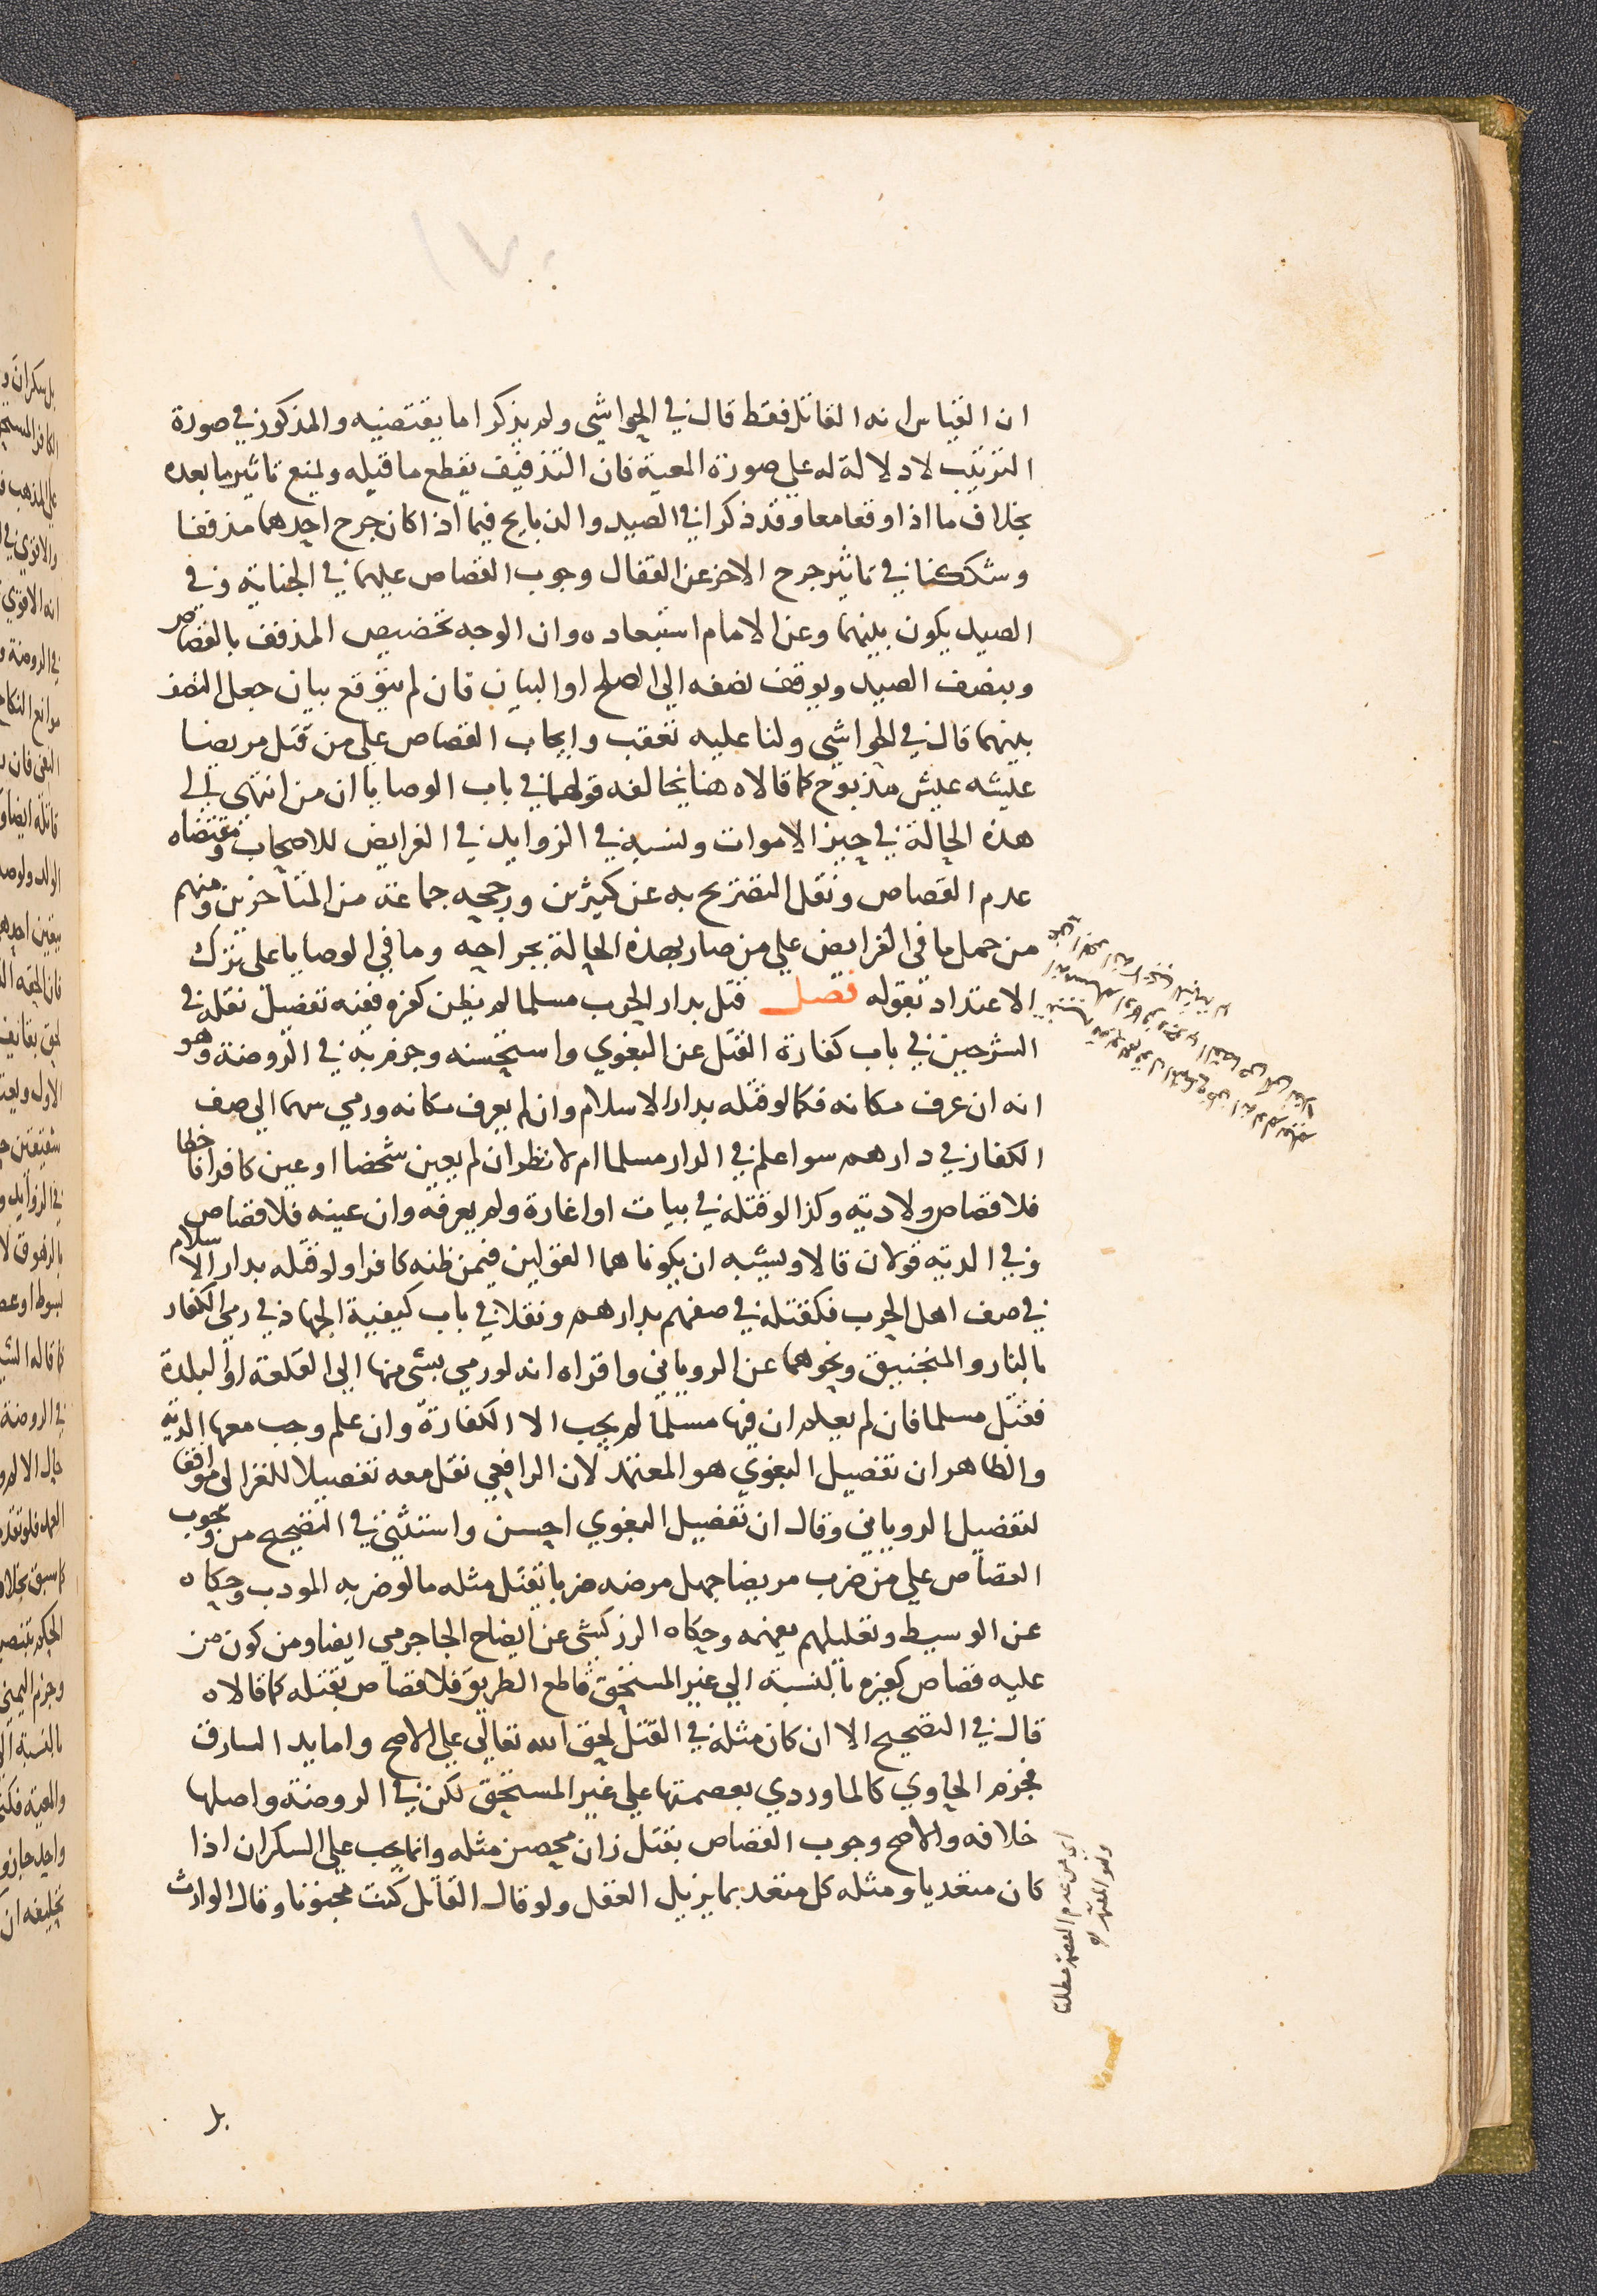 ان القياس انه القاتل فقط قال في الحواشي ولم يذكرا ما يقتضيه والمذكور في صورة
الترتيب لا دلالة له على صورة المعية فان التذفيف يقطع ما قبله ويمنع تاثير ما بعده
بخلاف ما اذا وقعا معا وقد ذكرا في الصيد والذبايح فيما اذا كان جرح احدهما مذففا
وشككنا في تاثير جرح الاخر عن القفال وجوب القصاص عليهما في الجناية وفي
الصيد يكون بينهما وعن الامام استبعاده وان الوجه تخصيص المذفف بالقصاص
وبنصف الصيد ويوقف نصفه الى الصلح او البيان فان لم يتوقع بيان جعل النصف
بينهما قال في الحواشي ولنا عليه تعقب وايجاب القصاص على من قتل مريضا
عيشه عيش مذبوح كما قالاه هنا يخالفه قولهما في باب الوصايا ان من انتهى الى
هذه الحالة في حيز الاموات ونسبه في الزوايد في الفرايض للاصحاب ومقتضاه
عدم القصاص ونقل التصريح به عن كثيرين ورجحه جماعة من المتاخرين ومنهم
من حمل ما في الفرايض على من صار بهذه الحالة بجراحه وما في الوصايا على ترك
الاعتداد بقوله فصل قتل بدار الحرب مسلما لم يظن كفره ففيه تفصيل نقله في
الشرحين في باب كفارة القتل عن البغوي واستحسنه وجزم به في الروضة وهو
انه ان عرف مكانه فكما لو قتله بدار الاسلام وان لم يعرف مكانه ورمى سهما الى صف
الكفار في دارهم سوا علم في الدار مسلما ام لا نظر ان لم يعين شخصا او عين كافرا فاخطا
فلا قصاص ولا دية وكذا لو قتله في بيات او اغارة ولم يعرفه وان عينه فلا قصاص
وفي الدية قولان قالا ويشبه ان يكونا هما القولين فيمن ظنه كافرا ولو قتله بدار الاسلام
في صف اهل الحرب فكقتله في صفهم بدارهم ونقلا في باب كيفية الجهاد في رمي الكفار
بالنار والمنجنيق ونحوهما عن الروياني واقراه انه لو رمى بشي منها الى القلعة او البلدة
فقتل مسلما فان لم يعلم ان فيها مسلما لم يجب الا الكفارة وان علم وجب معها الدية
والظاهر ان تفصيل البغوي هو المعتمد لان الرافعي نقل معه تفصيلا للغزالي موافقا
لتفصيل الروياني وقال ان تفصيل البغوي احسن واستثنى في التصحيح من وجوب
القصاص على من ضرب مريضا جهل مرضه ضربا يقتل مثله ما لو ضربه المودب وحكاه
عن الوسيط وتعليلهم يفهمه وحكاه الزركشي عن ايضاح الجاجرمي ايضا ومن كون من
عليه قصاص كغيره بالنسبة الى غير المستحق قاطع الطريق فلا قصاص بقتله كما قالاه
قال في التصحيح الا ان كان مثله في القتل لحق الله تعالى على الاصح واما يد السارق
فجزم الحاوي كالماوردي بعصمتها على غير المستحق لكن في الروضة واصلها
خلافه والاصح وجوب القصاص بقتل زان محصن مثله وانما يجب على السكران اذا
كان متعديا ومثله كل متعد بما يزيل العقل ولو قال القاتل كنت مجنونا وقال الوارث
اي من عدم العصمة مطلقا
وهو المعتمد
بل